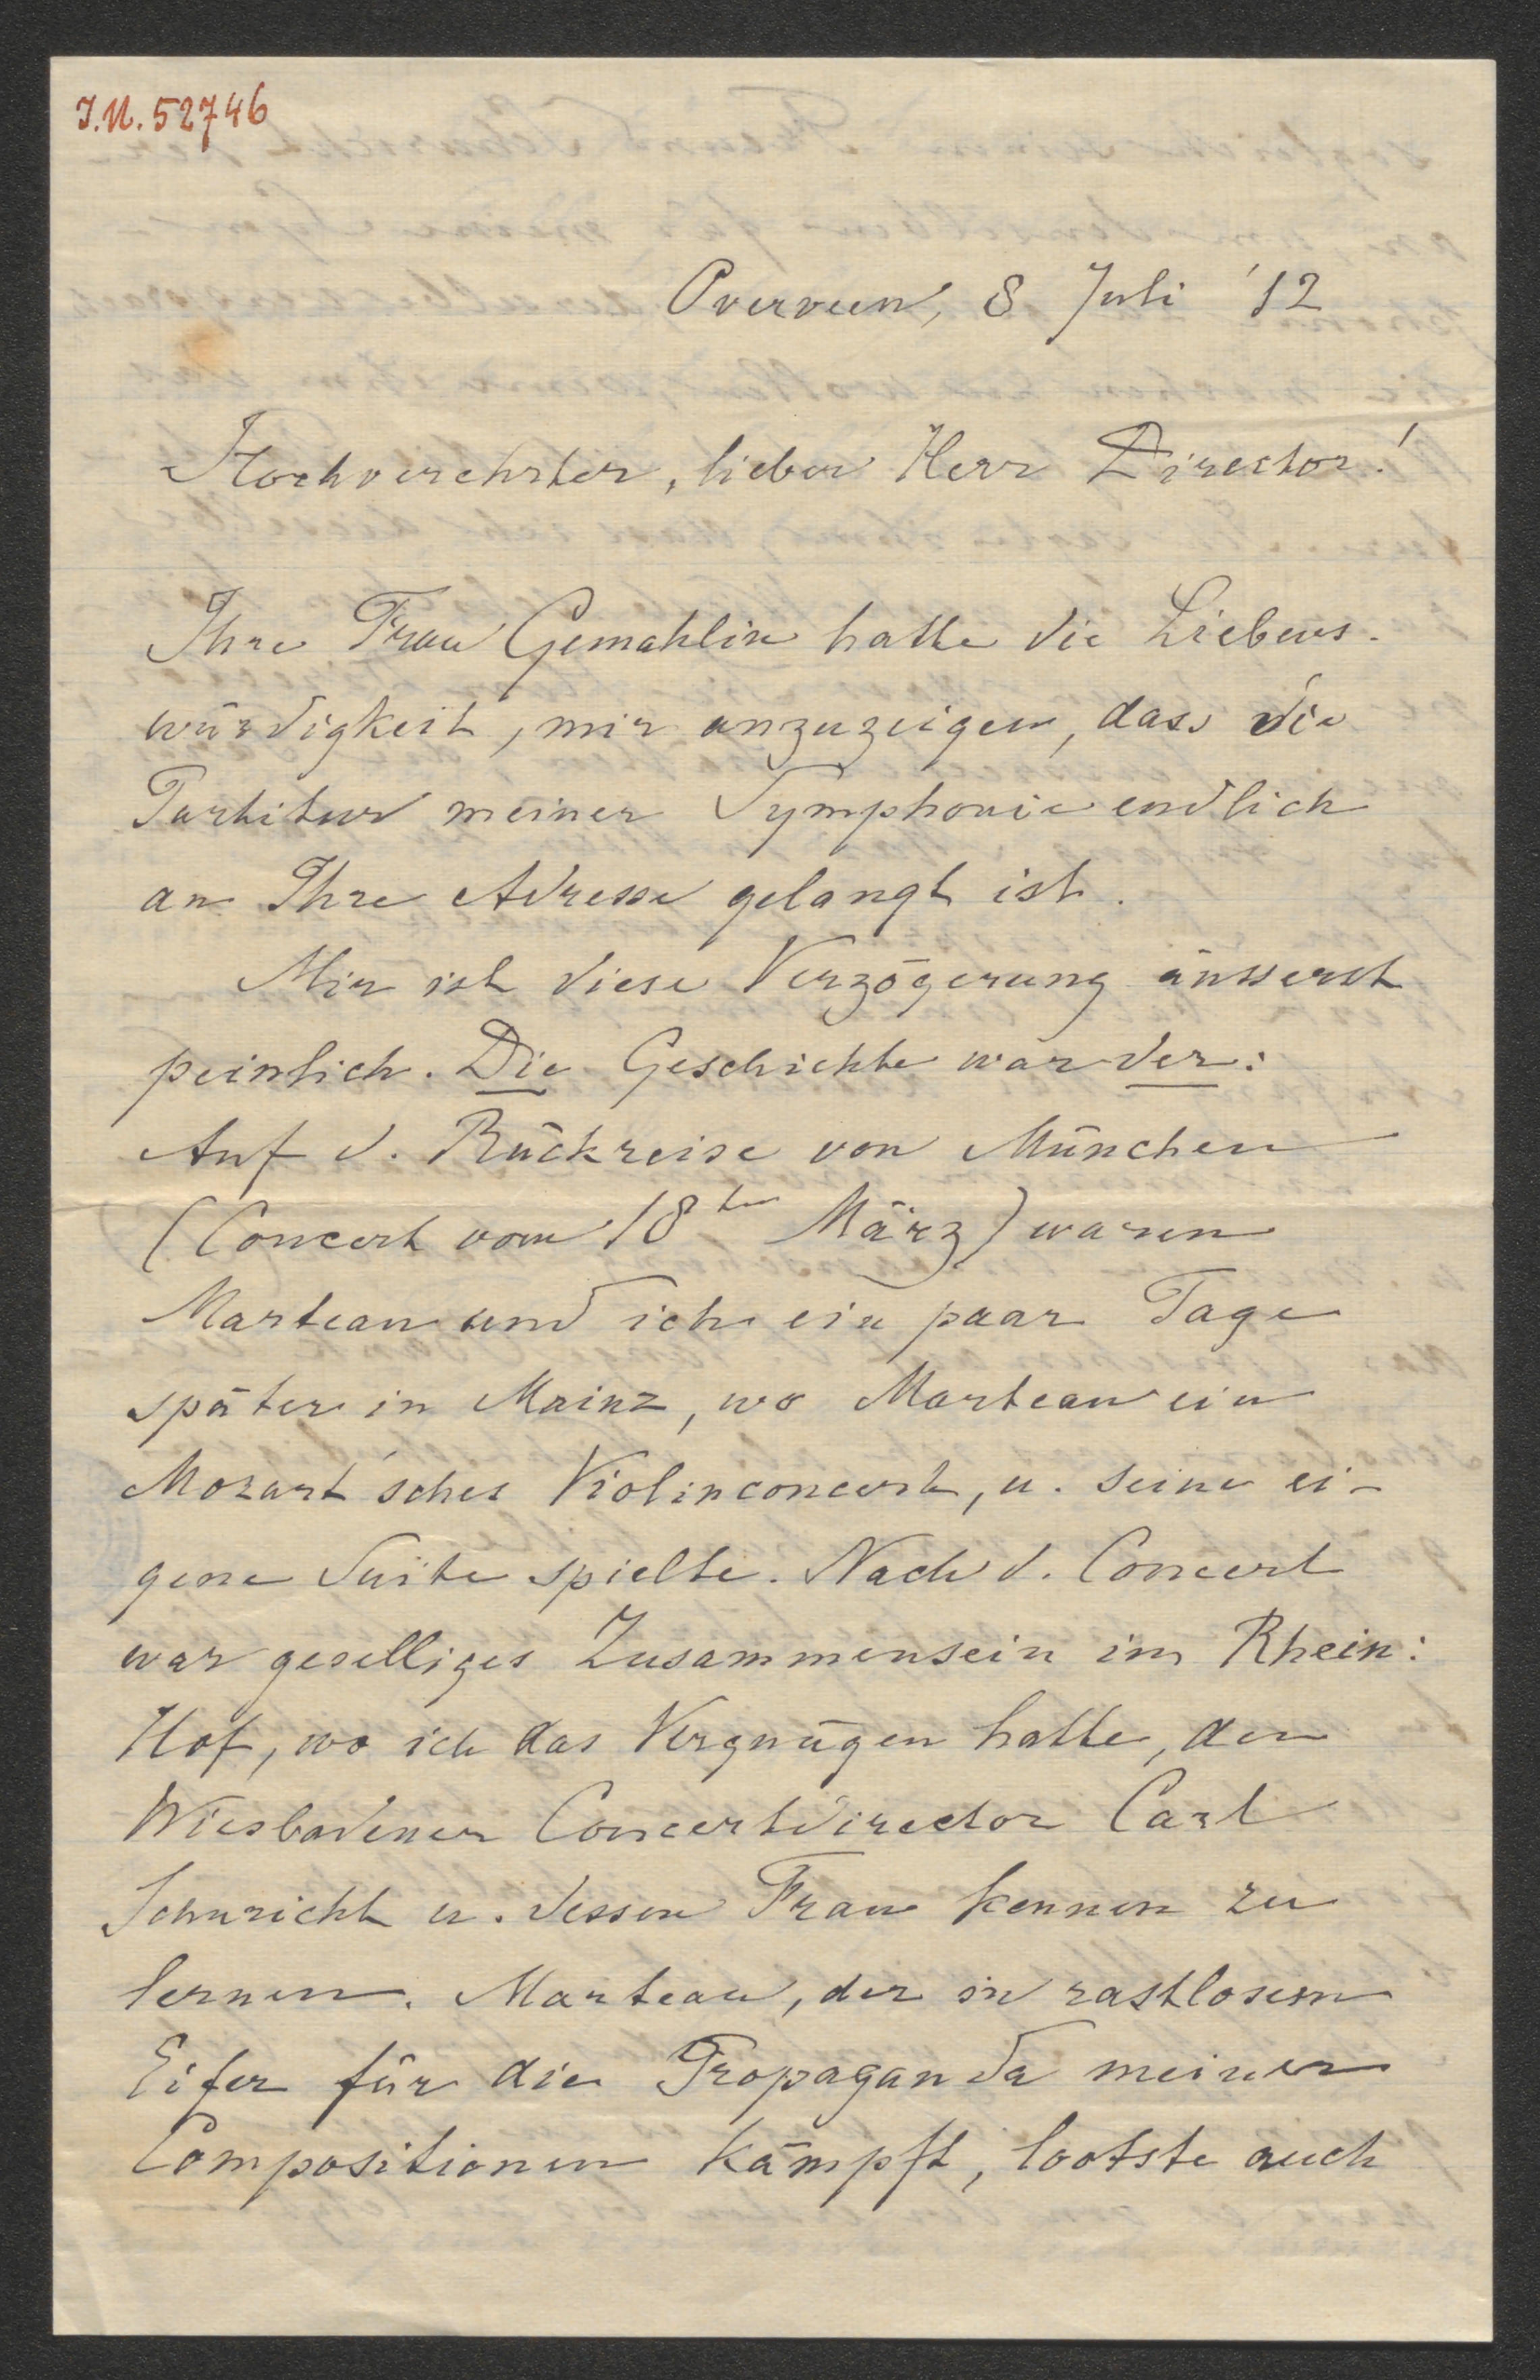 J.N. 52746
Overveen, 8 Juli '12
Hochverehrter, lieber Herr Director!
Ihre Frau Gemahlin hatte die Liebens-
würdigkeit, mir anzuzeigen, dass die
Partitur meiner Symphonie endlich
an Ihre Adresse gelangt ist.
Mir ist diese Verzögerung äusserst
peinlich. Die Geschichte war der:
Auf d. Rückreise von München
(Concert vom 18ten März) waren
Marteau und ich ein paar Tage
später in Mainz, wo Marteau ein
Mozart'sches Violinconcert, u. seine ei-
gene Suite spielte. Nach d. Concert
war geselliges Zusammensein im Rhein:
Hof, wo ich das Vergnügen hatte, den
Wiesbadener Concertdirector Carl
Schuricht u. dessen Frau kennen zu
lernen. Marteau, der in rastlosem
Eifer für die Propaganda meiner
Compositionen kämpft, lootste auch